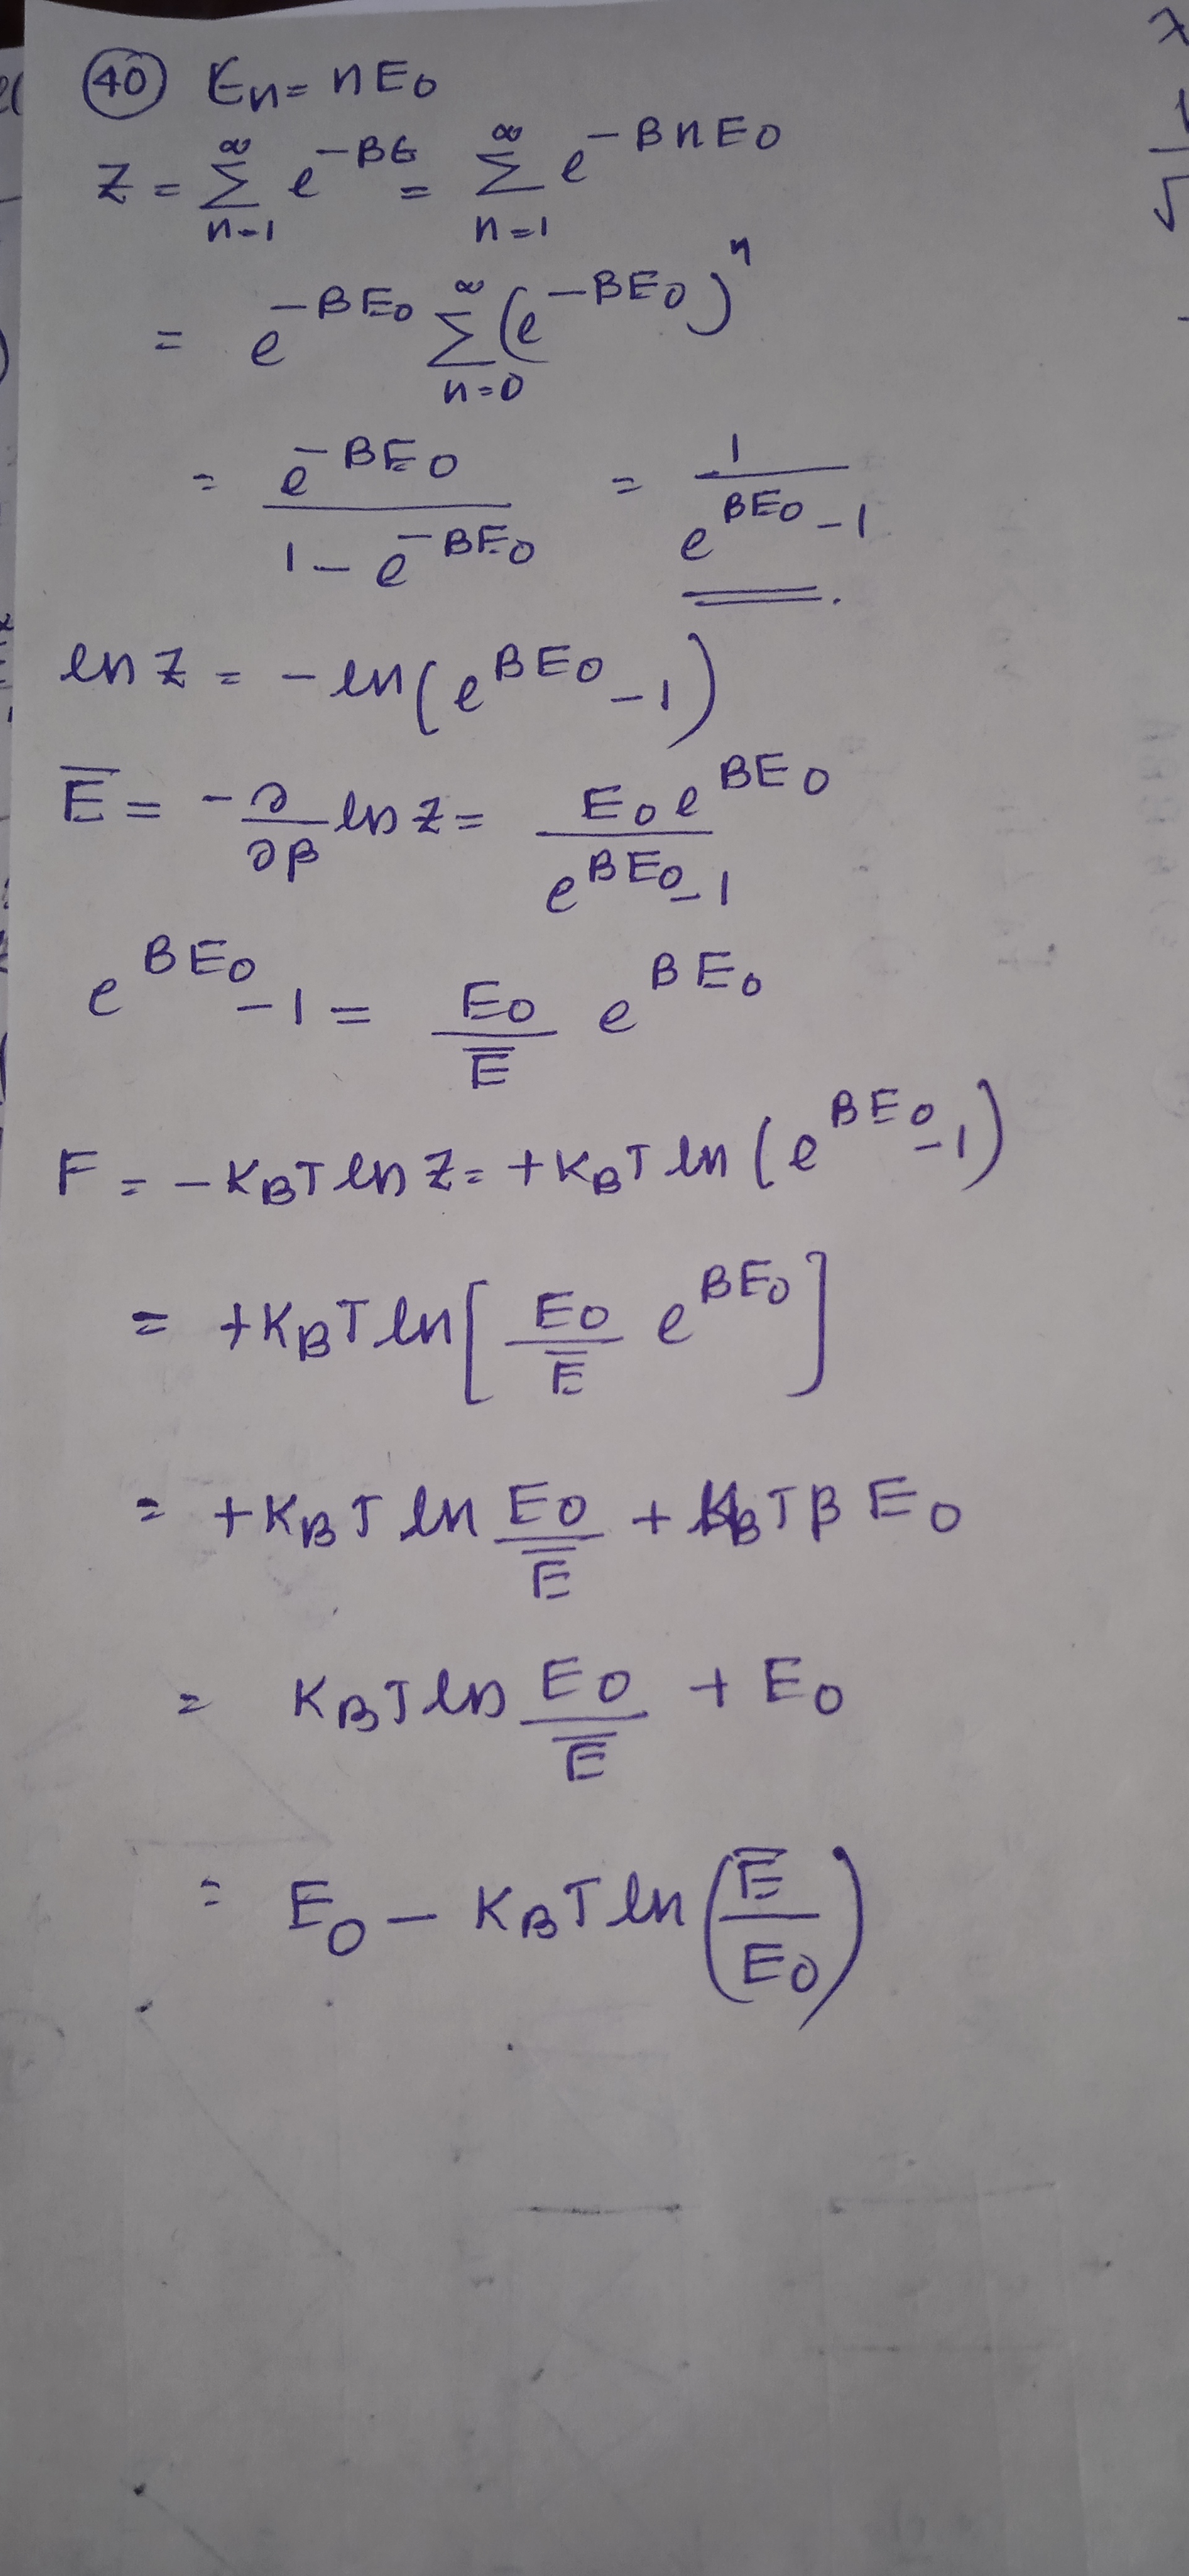 (40) En = nE0
Z = ∑_{n=1}^{∞} e^{-βE} = ∑_{n=1}^{∞} e^{-βnE0}
= e^{-βE0} ∑_{n=0}^{∞} (e^{-βE0})^n
= e^{-βE0} / (1 - e^{-βE0}) = 1 / (e^{βE0} - 1).
ln Z = - ln (e^{βE0} - 1)
E̅ = -∂/∂β ln Z = E0 e^{βE0} / (e^{βE0} - 1)
e^{βE0} - 1 = E0/E̅ e^{βE0}
F = - KBT ln Z = + KBT ln (e^{βE0} - 1)
= + KBT ln [E0/E̅ e^{βE0}]
= + KBT ln E0/E̅ + KBTβE0
= KBT ln E0/E̅ + E0
= E0 - KBT ln (E̅/E0)